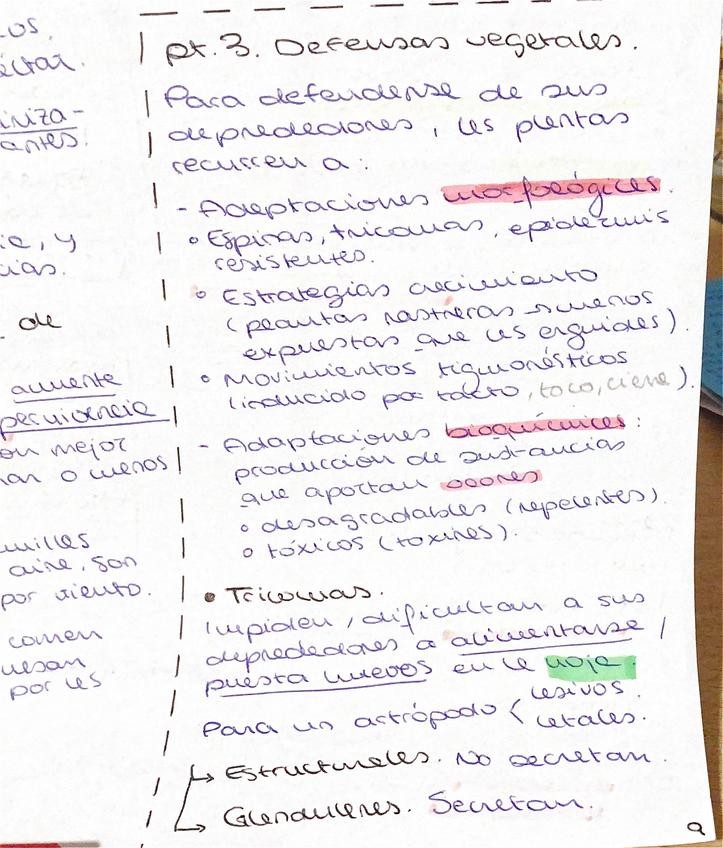 -os.
éctar.
iniza-
antes.
ie, y
cias.
. de
aumente
pervivencia
on mejor
nan o menos
millas
aire, son
por viento.
comen
uesan
por las
pt. 3. Defensas vegetales.
Para defenderse de sus
depredadores, las plantas
recurren a:
- Adaptaciones morfológicas.
° Espinas, tricomas, epidermis
resistentes.
° Estrategias crecimiento
(plantas rastreras → menos
expuestas que las erguidas).
° Movimientos tigmonásticos
(inducido por tacto, toco, cierra).
- Adaptaciones bioquímicas:
producción de sustancias
que aportan olores
° desagradables (repelentes).
° tóxicos (toxinas).
• Tricomas.
Impiden / dificultan a sus
depredadores a alimentarse /
puesta huevos en la hoja.
Para un artrópodo < lesivos.
letales.
↳ Estructurales. No secretan.
↳ Glandulares. Secretan.
9